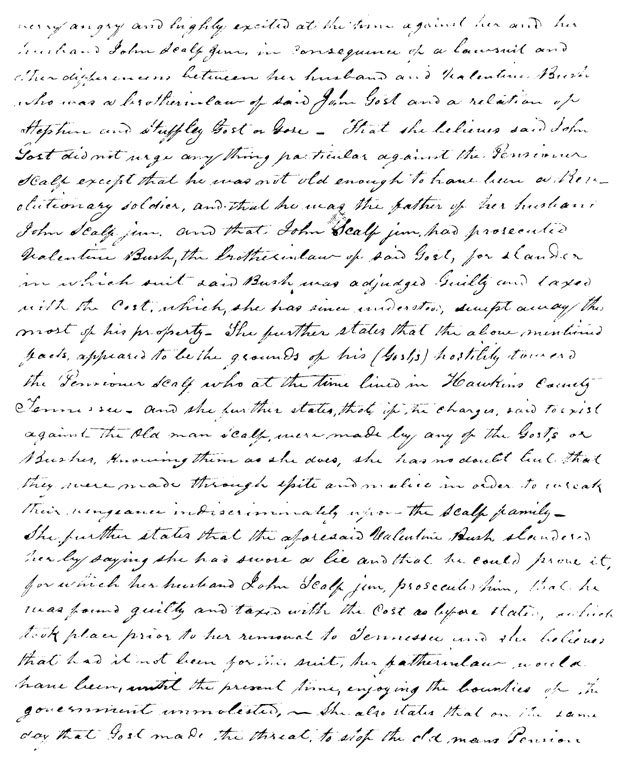 very angry and highly excited at the time against her and her
husband John Scalf Jun. in consequence of a lawsuit and
other differences between her husband and Valentine Bush
who was a brotherinlaw of said John Gost and a relation of
and Gost or Gose – That she believes said John
Gost did not urge any thing particular against the Pensioner
Scalf except that he was not old enough to have been a Revo-
olutionary soldier, and that he was the father of her husband
John Scalf jun. and that John Scalf jun, had prosecuted
Valentine Bush, the brotherinlaw of said Gost, for slander
in which suit said Bush was adjudged Guilty and taxed
with the Cost, which, she has since understood, swept away the
most of his property – She further states that the above mentioned
facts, appeared to be the grounds of his (Gosts) hostility toward
the Pensioner Scalf who at the time lived in Hawkins County
Tennessee – and she further states, that if the charges, said to exist
against the Old man Scalf, were made by any of the Gosts or
Bushes, Knowing them as she does, she has no doubt but that
they were made through spite and malice in order to wreak
their vengeance indiscriminately upon the Scalf family –
She further states that the aforesaid Valentine Bush slandered
her by saying she had swore a lie and that he could prove it,
for which her husband John Scalf jun, prosecuted him, that he
was found guilty and taxed with the Cost as before stated, which
took place prior to her removal to Tennessee and she believes
that had it not been for this suit, her fatherinlaw would
have been, until the present time, enjoying the bounties of the
government unmolested, – She also states that on the same
day that Gost made the threat, to stop the old mans Pension